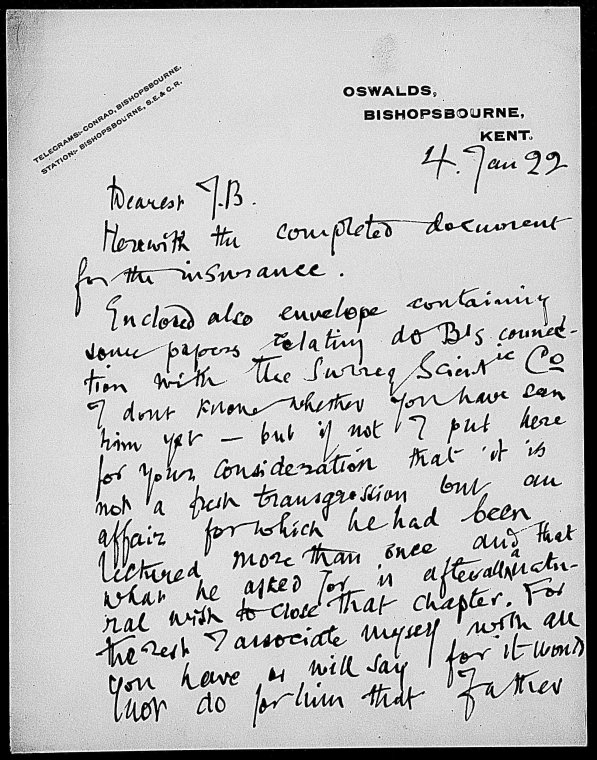 TELEGRAMS:- CONRAD, BISHOPSBOURNE.
STATION:- BISHOPSBOURNE, S.E. & C. R.
OSWALDS,
BISHOPSBOURNE,
KENT.
4. Jan 22
Dearest J.B.
Herewith the completed document
for the insurance.
Enclosed also envelope containing
some papers relating do B's connec-
tion with the Surrey Scientic Co
I dont know whether you have seen
him yet — but if not I put here
for your consideration that it is
not a fresh transgression but an
affair for which he had been
lectured more than once and that
what he asked for is afterall a natu-
ral wish to close that chapter. For
the rest I associate myself with all
you have or will say for it would
not do for him that Father